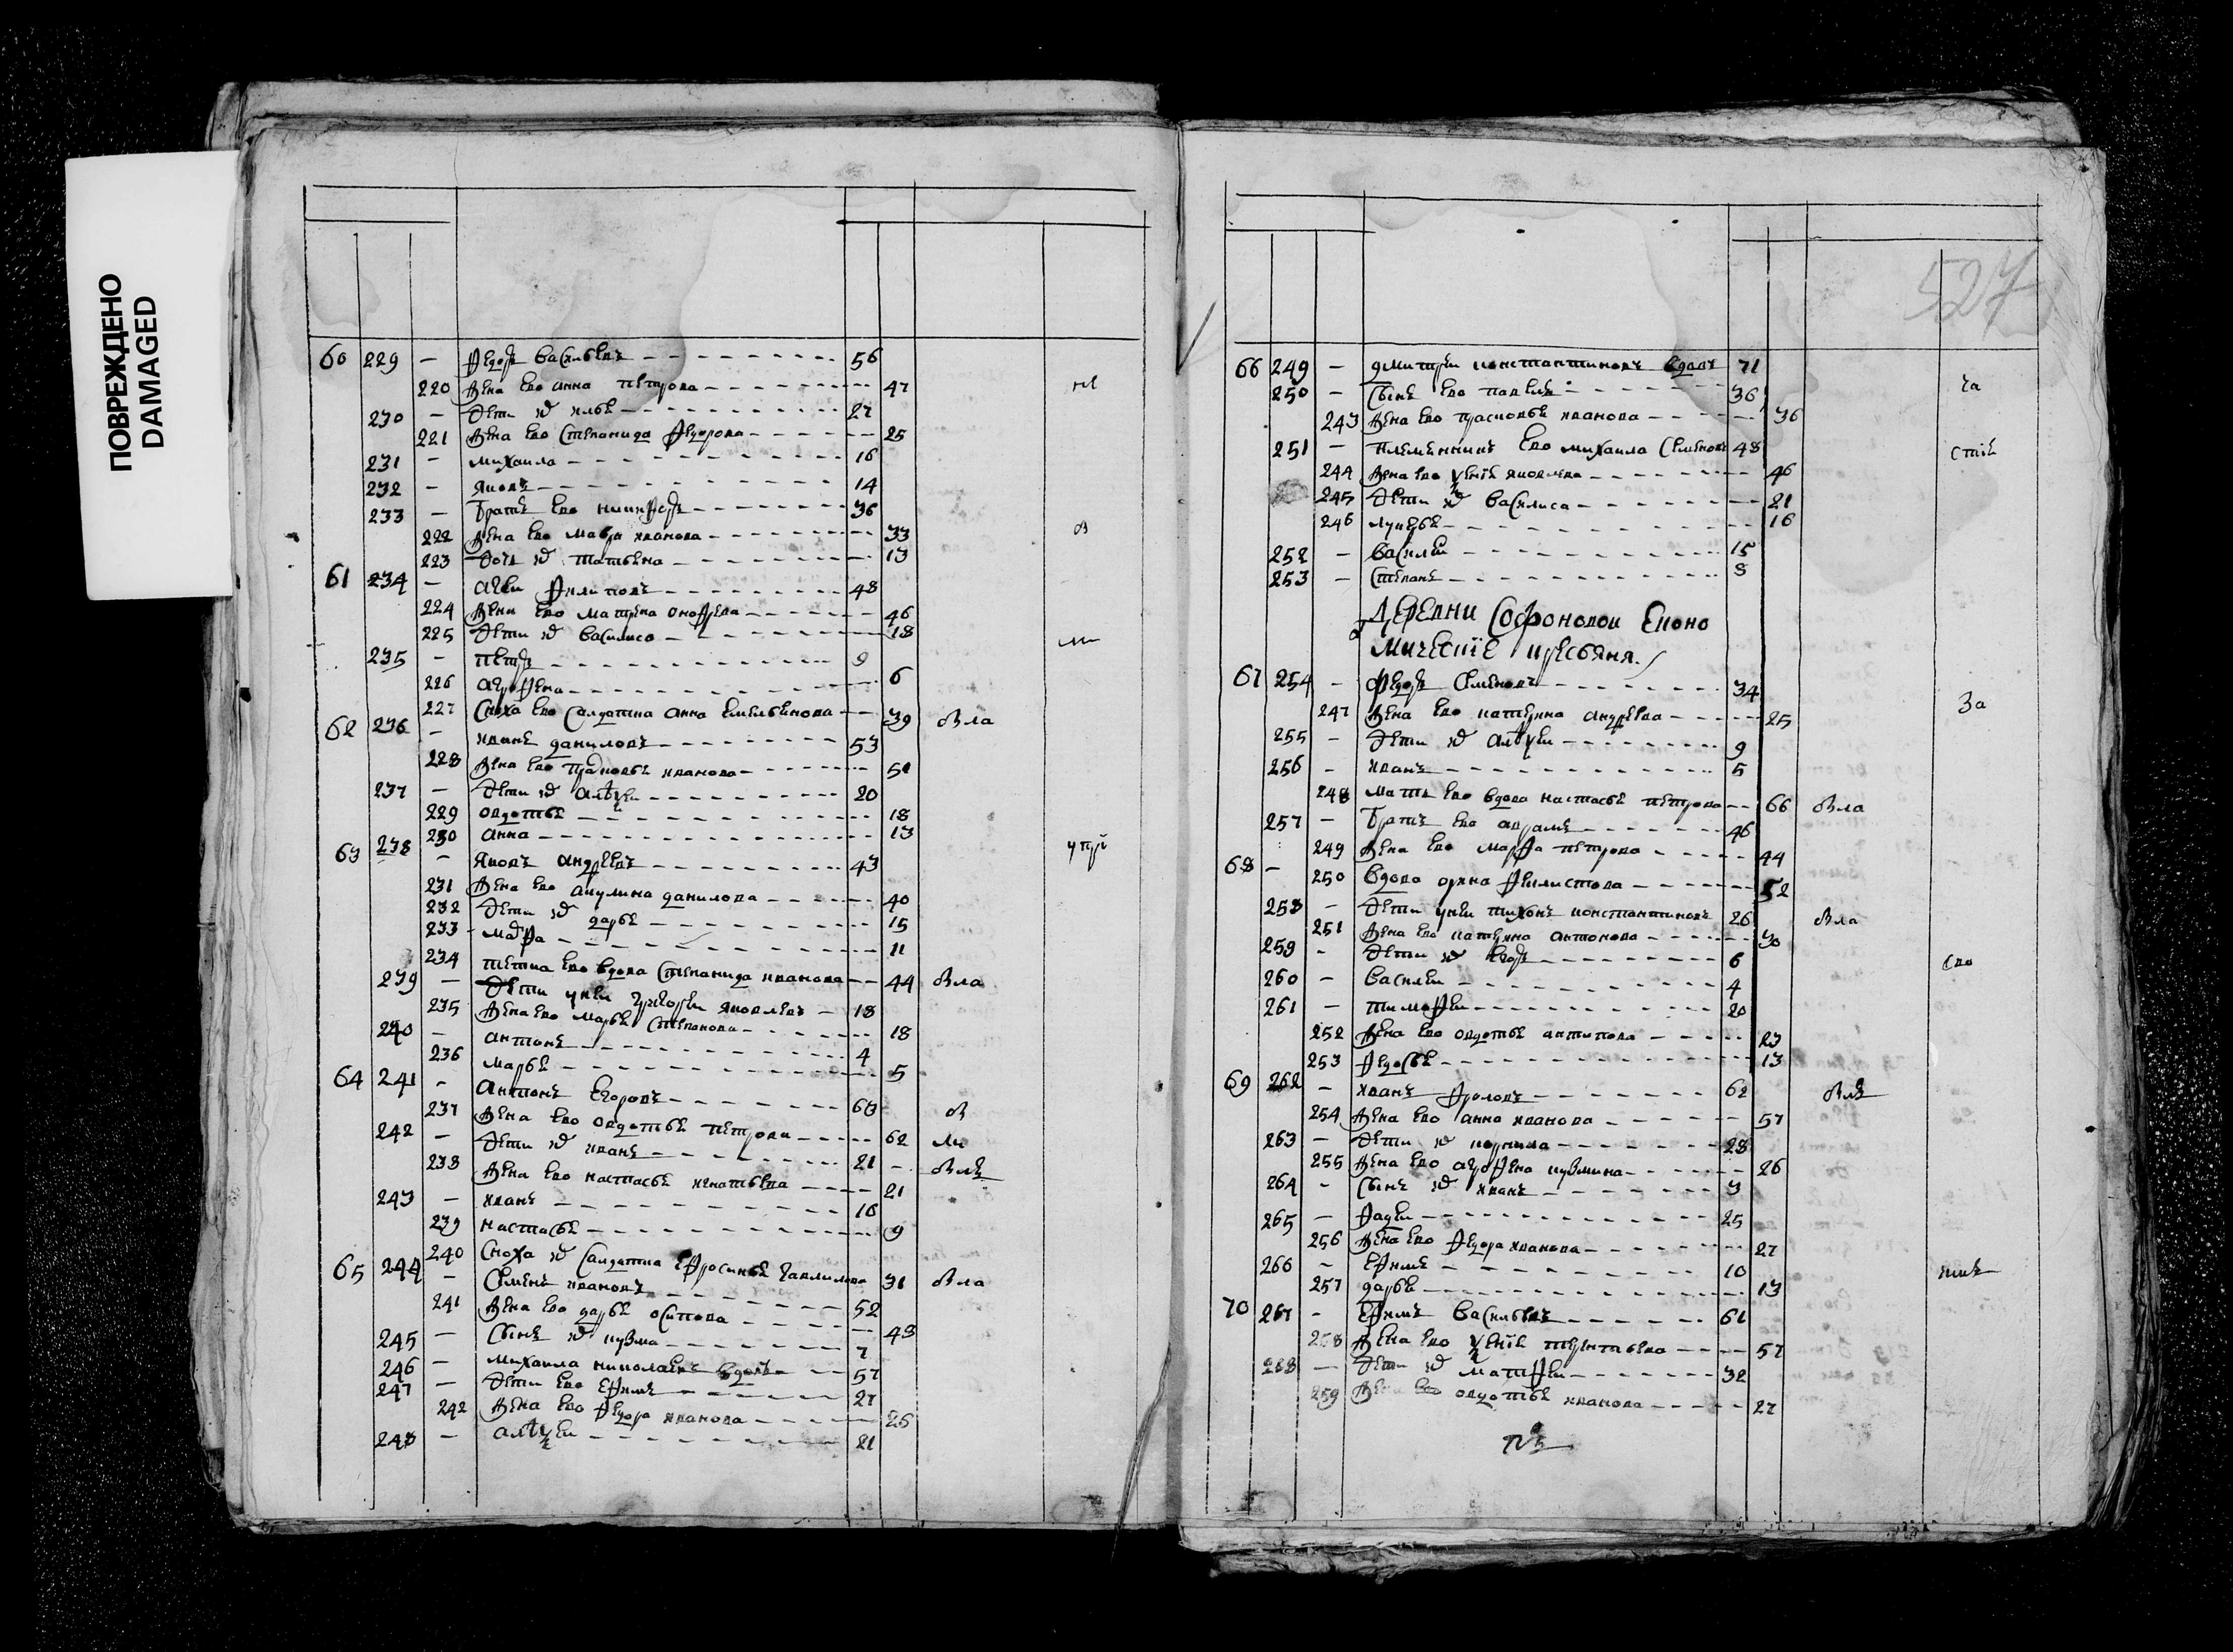 ПОВРЕЖДЕНО
DAMAGED
60 229 – Федоръ Васильевъ 56
220 Жена ево Анна Петрова 47
230 – Дети их Илья 27
221 Жена ево Степанида Федорова 25
231 – Михаила 16
232 – Яковъ 14
233 – Братъ ево Никифоръ 36
222 Жена ево Мавра Иванова 33
223 Дочь их Татьяна 13
61 234 – Агеи Филиповъ 48
224 Жена ево Матрена Онофрева 46
225 Дети их Василиса 18
235 – Петръ 9
226 Агрофена 6
227 Сноха ево салдатка Анна Емельянова 39 вла
62 236 – Иванъ Даниловъ 53
228 Жена ево Прасковья Иванова 51
237 – Дети их Алексеи 20
229 Овдотья 18
230 Анна 13
63 238 – Яковъ Андреевъ 43
231 Жена ево Акулина Данилова 40
232 Дети их Дарья 15
233 Марфа 11
234 Тетка ево вдова Степанида Иванова 44 вла
239 – Дети у неи Григореи Яковлевъ 18
235 Жена ево Марья Степанова 18
240 – Антонъ 4
236 Марья 5
64 241 – Антонъ Егоровъ 60 в
237 Жена ево Овдотья Петрова 62 ли
242 – Дети их Иванъ 21
238 Жена ево Настасья Игнатьева 21
243 – Иванъ 16
239 Настасья 9
240 Сноха их салдатка Ефросинья Гаврилова 31 вла
65 244 – Семенъ Ивановъ 52
241 Жена ево Дарья Осипова 48
245 – Сынъ их Кузма 7
246 – Михаила Николаевъ вдовъ 57
247 – Дети ево Ефимъ 27
242 Жена ево Федора Иванова 26
248 – Алексеи 21
527
66 249 – Дмитреи Константиновъ вдовъ 71
250 – Сынъ ево Павелъ 36 ча
243 Жена ево Прасковья Иванова 36
251 – Племенникъ ево Михаила Семеновъ 48
244 Жена ево Ксенья Яковлева 46
245 Дети их Василиса 21
246 Лукерья 16
252 – Василеи 15
253 – Степанъ 8
Деревни Софоновои Еконо
мические кресьяня
67 254 – Федоръ Семеновъ 34 за
247 Жена ево Катерина Андреева 25
255 – Дети их Алексеи 9
256 – Иванъ 5
248 Мать ево вдова Настасья Петрова 66 вла
257 – Братъ ево Аврамъ 46
249 Жена ево Марфа Петрова 44
68 – 250 Вдова Орина Феклистова 52
258 – Дети у неи Тихонъ Константиновъ 26 вла
251 Жена ево Катерина Антонова 30
259 – Дети их Егоръ 6
260 – Василеи 4
261 – Тимофеи 20
252 Жена ево Овдотья Антипова 23
253 Федосья 13
69 262 – Иванъ Фроловъ 62
254 Жена ево Анна Иванова 57
263 – Дети их Корнила 28
255 Жена ево Агрофена Кузмина 26
264 – Сынъ их Иванъ 3
265 – Фадеи 25
256 Жена ево Федора Иванова 27
266 – Ефимъ 10
257 Дарья 13
70 267 – Ефимъ Васильевъ 61
258 Жена ево Ксенья Терентьева 57
268 – Дети их Матфеи 32
259 Жена ево Овдотья Иванова 27